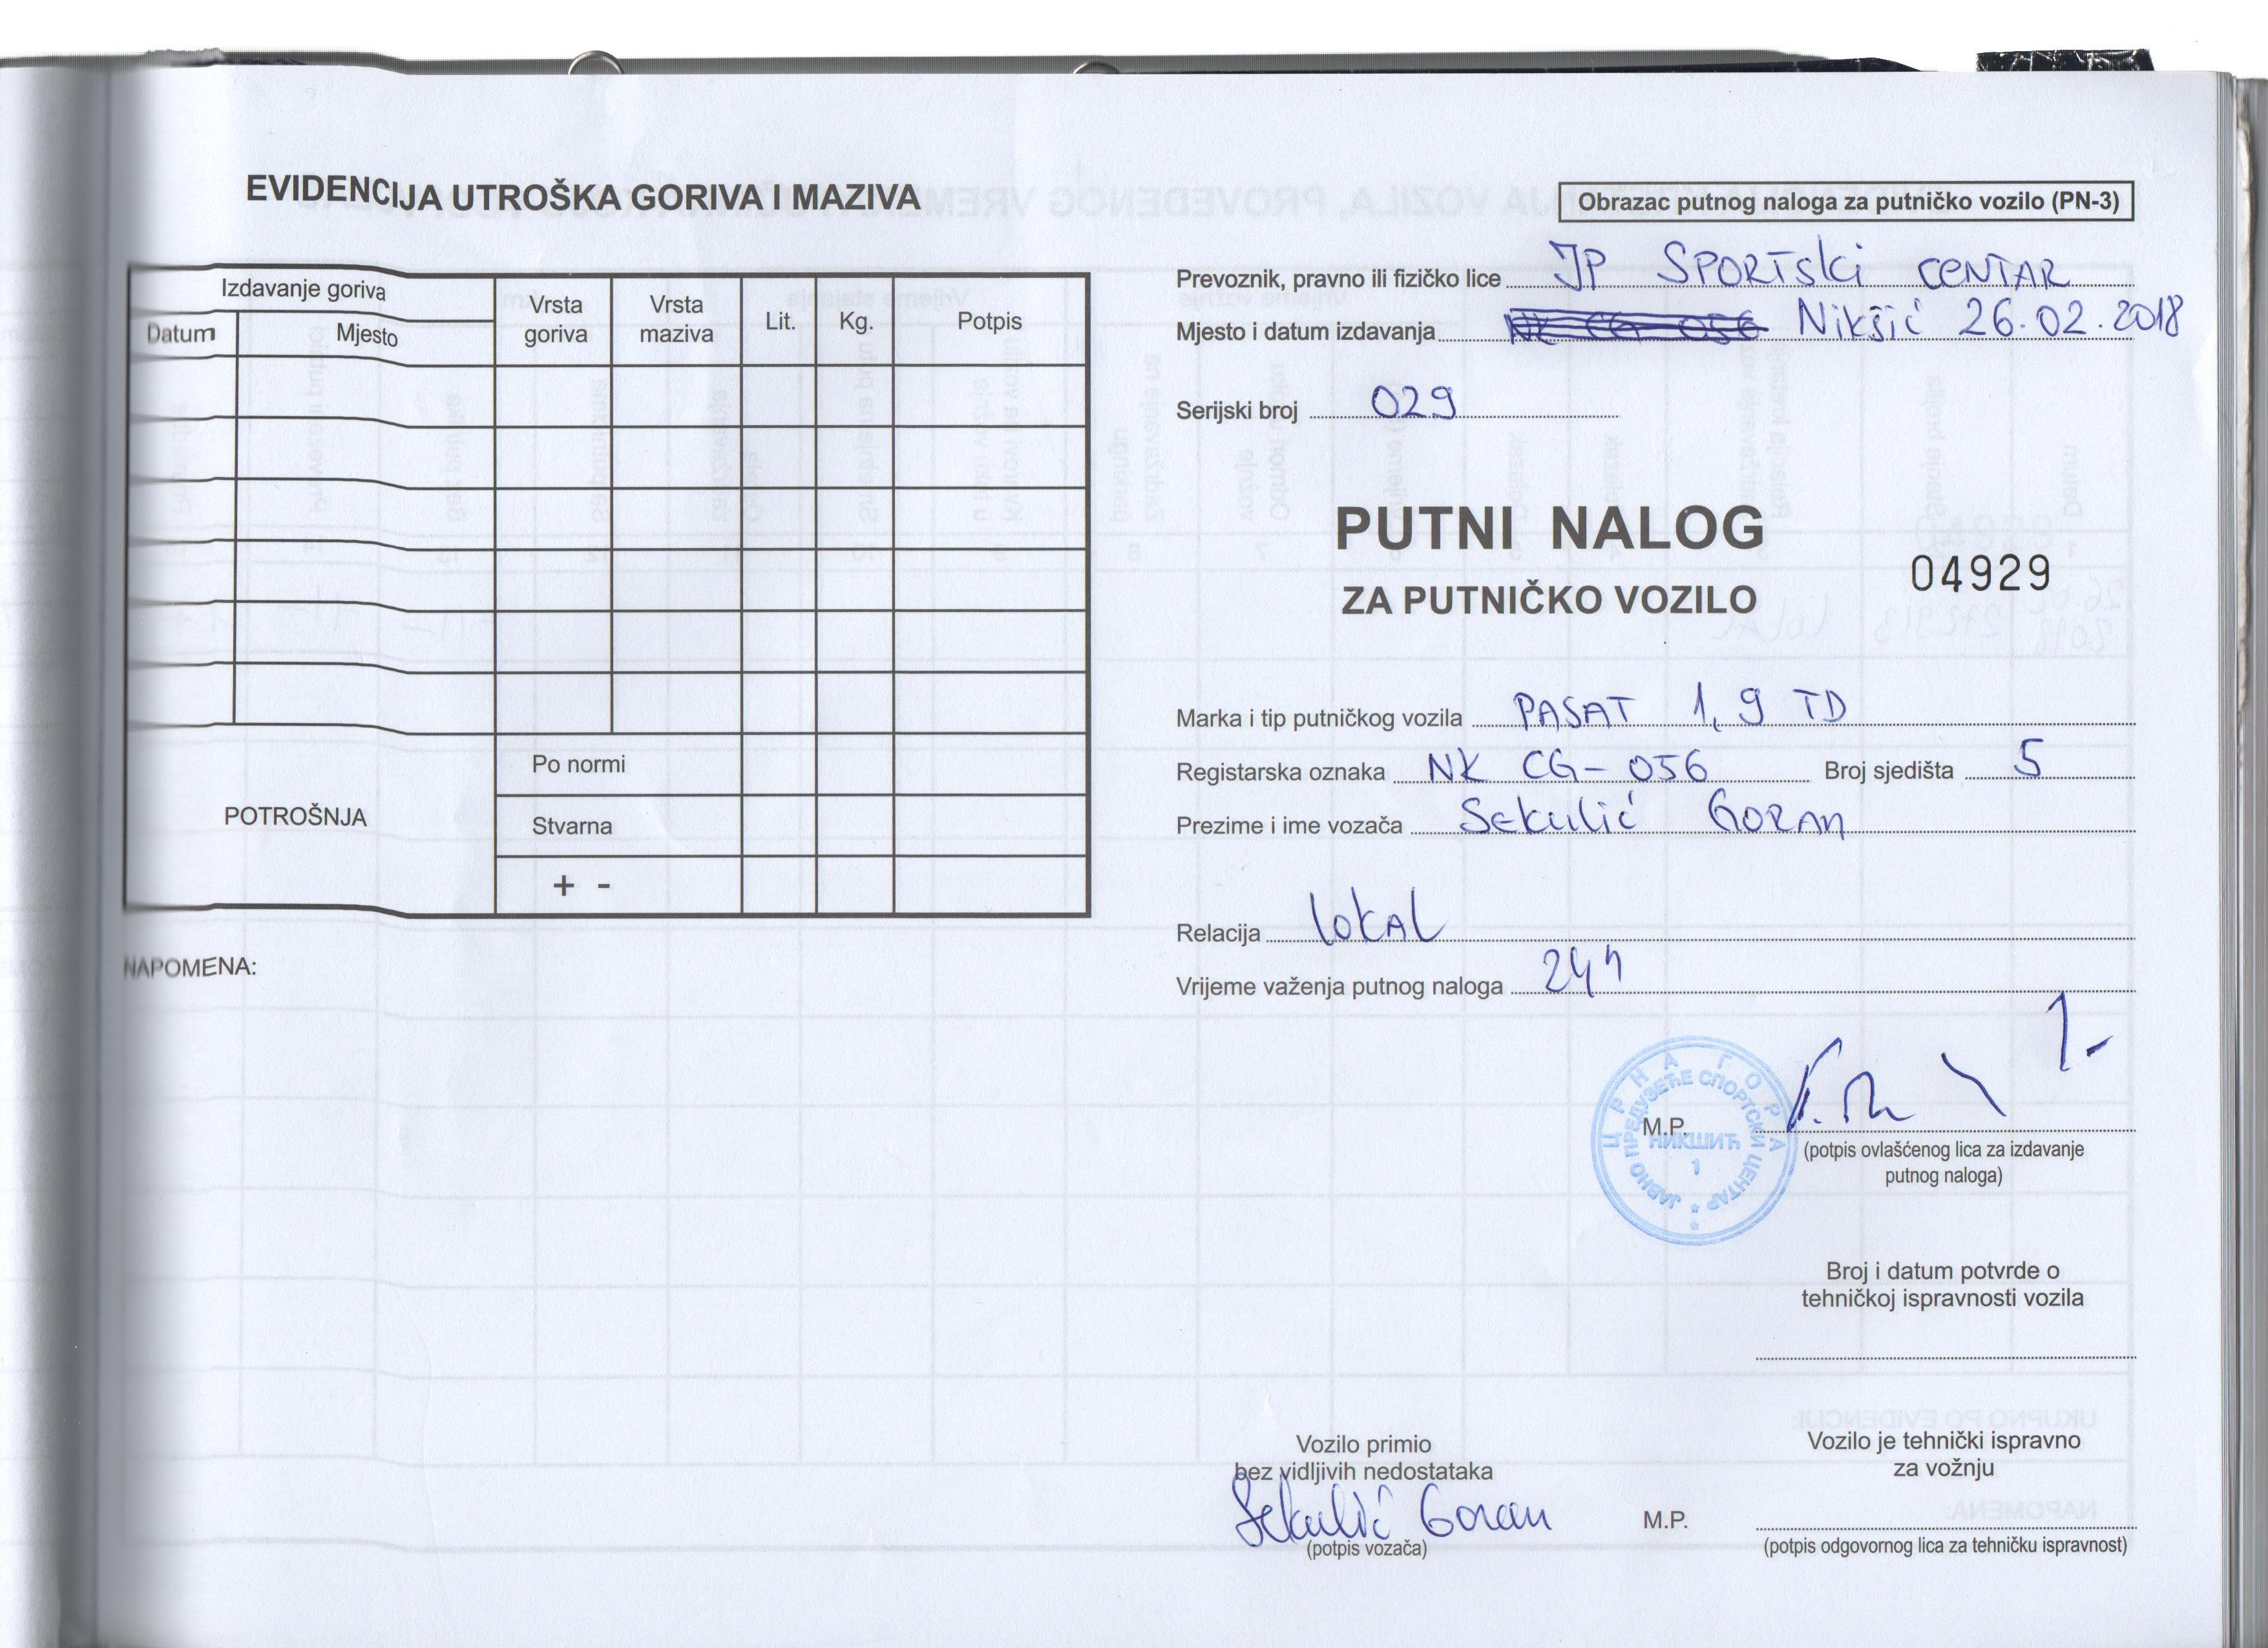 EVIDENCIJA UTROŠKA GORIVA I MAZIVA
Izdavanje goriva
Datum
Mjesto
Vrsta goriva
Vrsta maziva
Lit.
Kg.
Potpis
POTROŠNJA
Po normi
Stvarna
+ -
NAPOMENA:
Obrazac putnog naloga za putničko vozilo (PN-3)
Prevoznik, pravno ili fizičko lice JP SPORTSKI CENTAR
Mjesto i datum izdavanja NK CG 056 Nikšić 26.02.2018
Serijski broj 029
PUTNI NALOG
04929
ZA PUTNIČKO VOZILO
Marka i tip putničkog vozila PASAT 1,9 TD
Registarska oznaka NK CG-056 Broj sjedišta 5
Prezime i ime vozača Sekulić Goran
Relacija lokal
Vrijeme važenja putnog naloga 24h
ЦРНА ГОРА
ЈАВНО ПРЕДУЗЕЋЕ СПОРТСКИ ЦЕНТАР
НИКШИЋ
1
M.P.
(potpis ovlašćenog lica za izdavanje
putnog naloga)
Broj i datum potvrde o
tehničkoj ispravnosti vozila
Vozilo primio
bez vidljivih nedostataka
Sekulić Goran
(potpis vozača)
Vozilo je tehnički ispravno
za vožnju
M.P.
(potpis odgovornog lica za tehničku ispravnost)